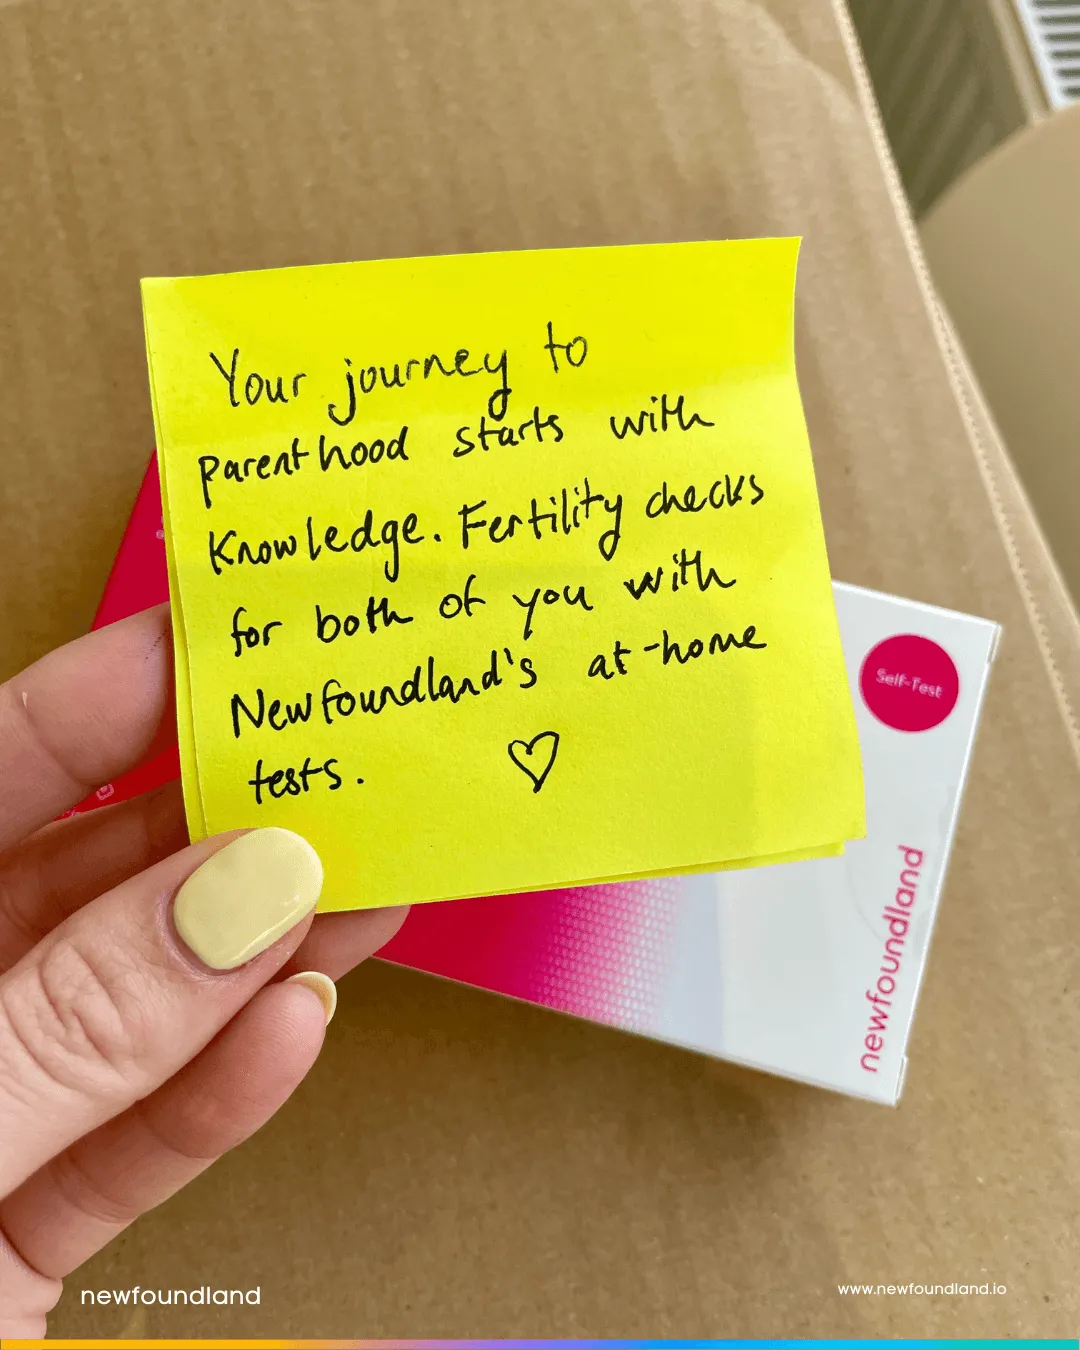 Your journey to
parenthood starts with
Knowledge. Fertility checks
for both of you with
Newfoundland's at-home
tests. ♡
Self-Test
newfoundland
newfoundland
www.newfoundland.io